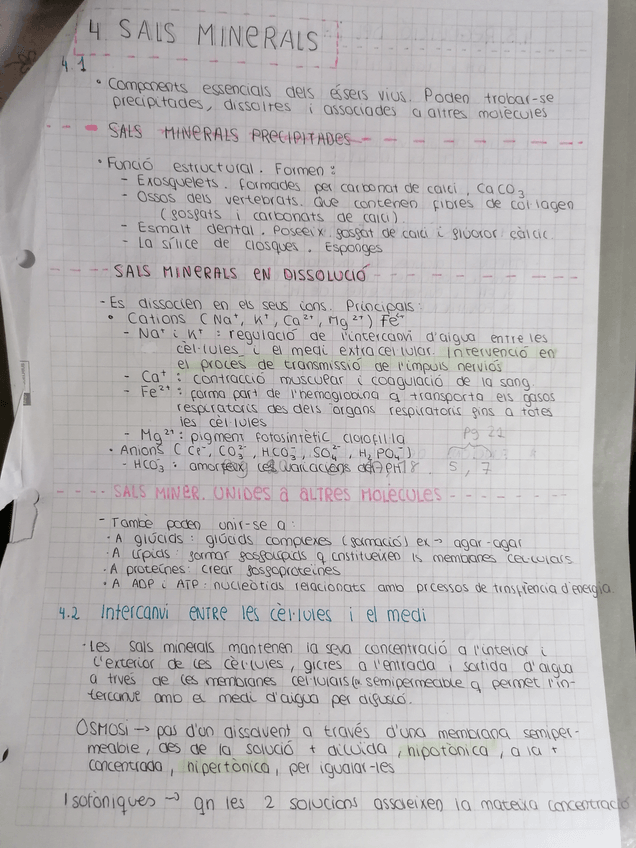 4 SALS MINERALS
4.1
• Components essencials dels éssers vius. Poden trobar-se
precipitades, dissoltes i associades a altres molècules
SALS MINERALS PRECIPITADES
• Funció estructural. Formen:
- Exosquelets. formades per carbonat de calci, CaCO3
- Ossos dels vertebrats. que contenen fibres de col·lagen
(fosfats i carbonats de calci)
- Esmalt dental. Poseeix fosfat de calci i fluorur càlcic
- La sílice de closques. Esponges
SALS MINERALS EN DISSOLUCIÓ
- Es dissocien en els seus ions. Principals:
• Cations (Na⁺, K⁺, Ca²⁺, Mg²⁺) Fe²⁺
- Na⁺ i K⁺: regulació de l'intercanvi d'aigua entre les
cèl·lules i el medi extracel·lular. Intervenció en
el procés de transmissió de l'impuls nerviós
- Ca⁺: contracció muscular i coagulació de la sang
- Fe²⁺: forma part de l'hemoglobina q transporta els gasos
respiratoris des dels òrgans respiratoris fins a totes
les cèl·lules
- Mg²⁺: pigment fotosintètic clorofil·la
pg 22
• Anions (Cl⁻, CO₃²⁻, HCO₃⁻, SO₄²⁻, H₂PO₄⁻)
- HCO₃⁻: amorteix les variacions del pH 5, 7
SALS MINER. UNIDES a ALTRES MOLÈCULES
- També poden unir-se a:
• A glúcids: glúcids complexes (formació) ex → agar-agar
• A lípids: formar fosfolípids q constitueixen ls membranes cel·lulars
• A proteïnes: crear fosfoproteïnes
• A ADP i ATP: nucleòtids relacionats amb processos de transfrència d'energia
4.2 Intercanvi ENTRE les cèl·lules i el medi
• Les sals minerals mantenen la seva concentració a l'interior i
l'exterior de les cèl·lules, gicres a l'entrada i sortida d'aigua
a través de les membranes cel·lulars (a semipermeable q permet l'in-
tercanvi amb el medi d'aigua per difusió.
OSMOSI → pas d'un dissolvent a través d'una membrana semiper-
meable, des de la solució + diluïda, hipotònica, a la +
concentrada, hipertònica, per igualar-les
Isotòniques → qn les 2 solucions assoleixen la mateixa concentració